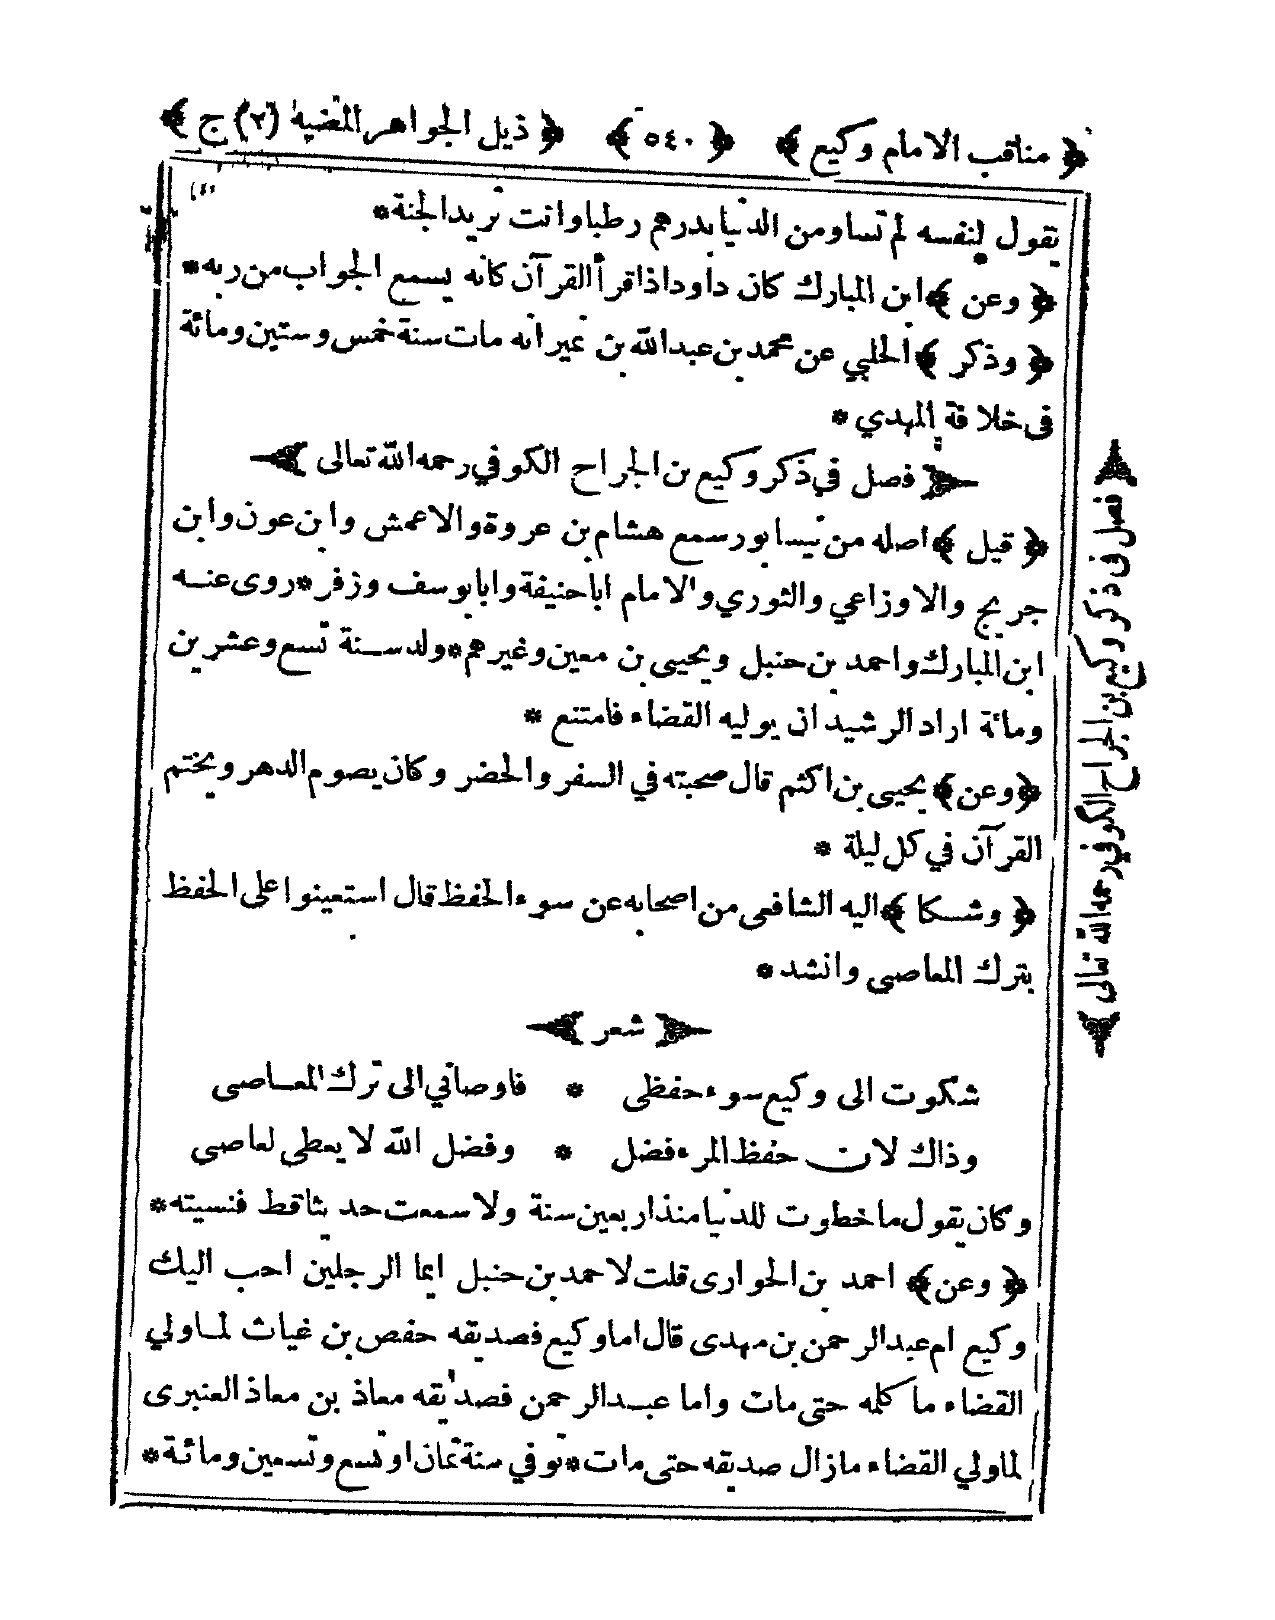 ﴿ مناقب الامام وكيع ﴾ ﴿ ٥٤٠ ﴾ ﴿ ذيل الجواهر المضيه (٢) ج ﴾
يقول لنفسه لم تساو من الدنيا بدرهم رطبا وانت تريد الجنة *
﴿ وعن ﴾ ابن المبارك كان داود اذا قرأ القرآن كانه يسمع الجواب من ربه *
﴿ وذكر ﴾ الحلبي عن محمد بن عبد الله بن نمير انه مات سنة خمس وستين ومائة
فى خلافة المهدي *
فصل في ذكر وكيع بن الجراح الكوفي رحمه الله تعالى
﴿ قيل ﴾ اصله من نيسابور سمع هشام بن عروة والاعمش وابن عون وابن
جريج والاوزاعي والثوري والامام اباحنيفة وابايوسف وزفر * روى عنه
ابن المبارك واحمد بن حنبل ويحيى بن معين وغيرهم * ولد سنة تسع وعشرين
ومائة اراد الرشيد ان يوليه القضاء فامتنع *
﴿ وعن ﴾ يحيى بن اكثم قال صحبته في السفر والحضر وكان يصوم الدهر ويختم
القرآن في كل ليلة *
﴿ وشكا ﴾ اليه الشافعى من اصحابه عن سوء الحفظ قال استعينوا على الحفظ
بترك المعاصى وانشد *
شعر
شكوت الى وكيع سوء حفظى * فاوصاني الى ترك المعاصى
وذاك لان حفظ المرء فضل * وفضل الله لا يعطى لعاصى
وكان يقول ما خطوت للدنيا منذ اربعين سنة ولا سمعت حديثا قط فنسيته *
﴿ وعن ﴾ احمد بن الحوارى قلت لاحمد بن حنبل ايما الرجلين احب اليك
وكيع ام عبد الرحمن بن مهدى قال اما وكيع فصديقه حفص بن غياث لما ولي
القضاء ما كلمه حتى مات واما عبد الرحمن فصديقه معاذ بن معاذ العنبرى
لما ولي القضاء ما زال صديقه حتى مات * توفي سنة ثمان او تسع وتسعين ومائة *
فصل فى ذكر وكيع بن الجراح الكوفي رحمه الله تعالى